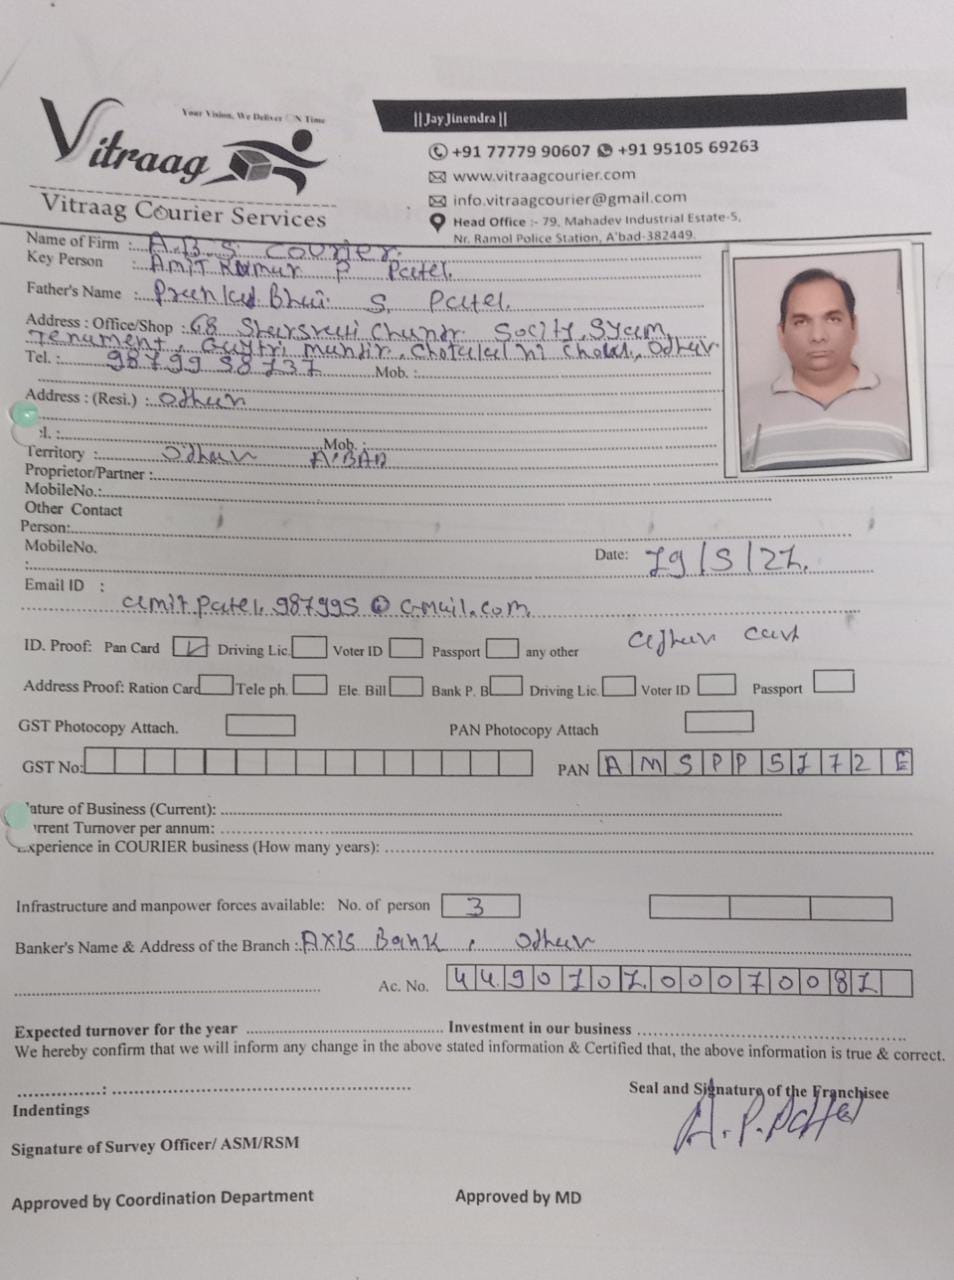 Your Vision, We Deliver ON Time
|| Jay Jinendra ||
Vitraag
+91 77779 90607 +91 95105 69263
www.vitraagcourier.com
info.vitraagcourier@gmail.com
Vitraag Courier Services
Head Office :- 79, Mahadev Industrial Estate-5,
Nr. Ramol Police Station, A'bad-382449.
Name of Firm : A.B.S. COURIER.
Key Person : AMIT KUMAR P Patel.
Father's Name : Bhai S. Patel.
Address : Office/Shop : 68 Socity, Syam
Tenament, Mandir, Chotalal ni Chali, Odhav
Tel. : 98799 98737 Mob. :
Address : (Resi.) : Odhav
el. : Mob. :
Territory : Odhav A'BAD
Proprietor/Partner :
MobileNo.:
Other Contact
Person:
MobileNo.
: Date: 29/5/22.
Email ID :
amit.patel.987995@Gmail.com
ID. Proof: Pan Card Driving Lic. Voter ID Passport any other
Address Proof: Ration Card Tele ph. Ele. Bill Bank P. B Driving Lic. Voter ID Passport
GST Photocopy Attach. PAN Photocopy Attach
GST No: PAN AMSPP5172E
ature of Business (Current):
urrent Turnover per annum:
Experience in COURIER business (How many years):
Infrastructure and manpower forces available: No. of person 3
Banker's Name & Address of the Branch : AXIS Bank, Odhav
Ac. No. 449010100070081
Expected turnover for the year Investment in our business
We hereby confirm that we will inform any change in the above stated information & Certified that, the above information is true & correct.
Seal and Signature of the Franchisee
Indentings
A.P.Patel
Signature of Survey Officer/ ASM/RSM
Approved by Coordination Department Approved by MD